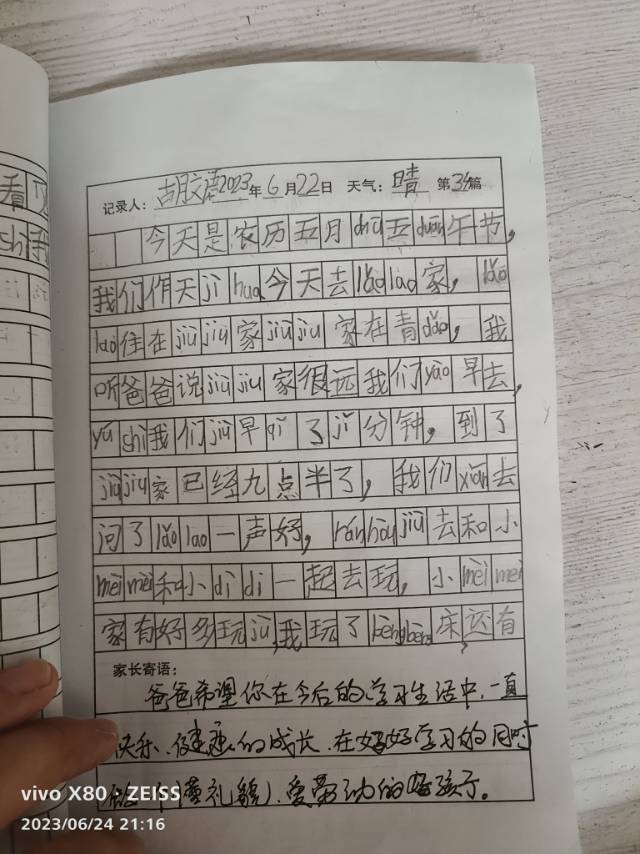 看
shi我
记录人：胡文语 2023年6月22日 天气：晴 第34篇
今天是农历五月chū五duān午节，
我们作天jì huà今天去lǎo lao家，lǎo
lao住在jiù jiu家jiù jiu家在青dǎo，我
听爸爸说jiù jiu家很远我们yào早去，
yú shì我们jiù早qǐ了jǐ分钟，到了
jiù jiu家已经九点半了，我们xiān去
问了lǎo lao一声好，rán hòu jiù去和小
mèi mei和小dì di一起去玩，小mèi mei
家有好多玩jù，我玩了bèng bèng床还有
家长寄语：
爸爸希望你在今后的学习生活中，一直
快乐、健康的成长，在好好学习的同时
做个懂礼貌、爱劳动的好孩子。
vivo X80 | ZEISS
2023/06/24 21:16